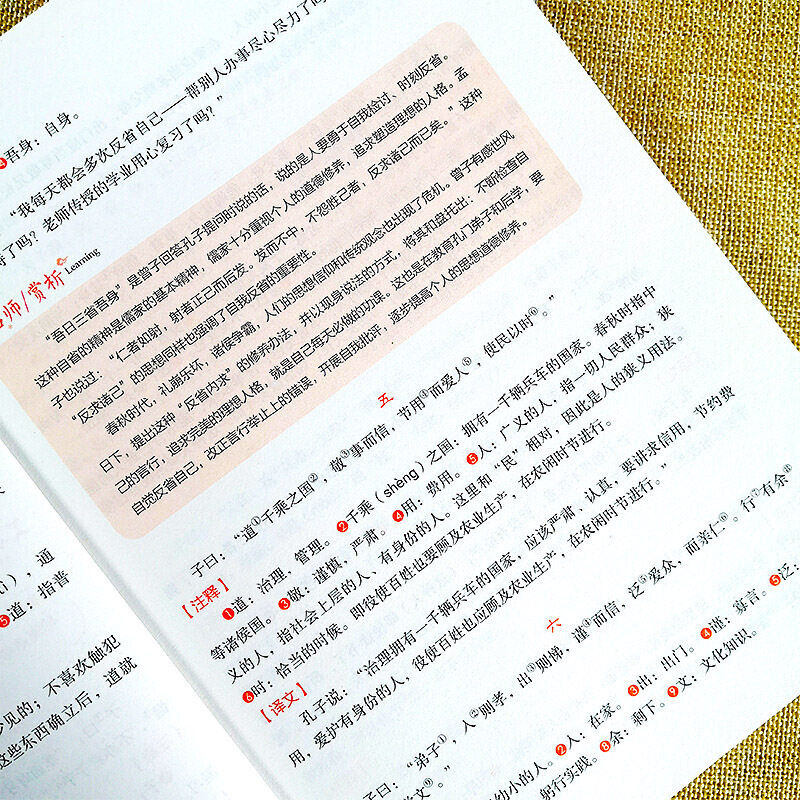 帮别人办事尽心尽力了吗
❹吾身：自身。
“我每天都会多次反省自己——
了吗？老师传授的学业用心复习了吗？”
名师/赏析 Learning
“吾日三省吾身”是曾子回答孔子提问时说的话，说的是人要勇于自我检讨、时刻反省。
这种自省的精神是儒家的基本精神，儒家十分重视个人的道德修养，追求塑造理想的人格。孟
子也说过：“仁者如射，射者正己而后发。发而不中，不怨胜己者，反求诸己而已矣。”这种
“反求诸己”的思想同样也强调了自我反省的重要性。
春秋时代，礼崩乐坏，诸侯争霸，人们的思想信仰和传统观念也出现了危机。曾子有感世风
日下，提出这种“反省内求”的修养办法，并以现身说法的方式，将其和盘托出：不断检查自
己的言行，追求完美的理想人格，就是自己每天必做的功课。这也是在教育孔门弟子和后学，要
自觉反省自己，改正言行举止上的错误，开展自我批评，逐步提高个人的思想道德修养。
五
子曰：“道①千乘之国②，敬③事而信，节用④而爱人⑤，使民以时⑥。”
【注释】
❶道：治理，管理。❷千乘（shèng）之国：拥有一千辆兵车的国家。春秋时指中
等诸侯国。❸敬：谨慎，严肃。❹用：费用。❺人：广义的人，指一切人民群众；狭
义的人，指社会上层的人、有身份的人。这里和“民”相对，因此是人的狭义用法。
❻时：恰当的时候。即役使百姓也要顾及农业生产，在农闲时节进行。
【译文】
孔子说：“治理拥有一千辆兵车的国家，应该严肃、认真，要讲求信用，节约费
用，爱护有身份的人，役使百姓也应顾及农业生产，在农闲时节进行。”
六
子曰：“弟子①，入②则孝，出③则悌，谨④而信，泛⑤爱众，而亲仁⑥。行⑦有余⑧
学文⑨。”
幼小的人。❷入：在家。❸出：出门。❹谨：寡言。❺泛：
躬行实践。❽余：剩下。❾文：文化知识。
），通
❺道：指普
少见的；不喜欢触犯
这些东西确立后，道就